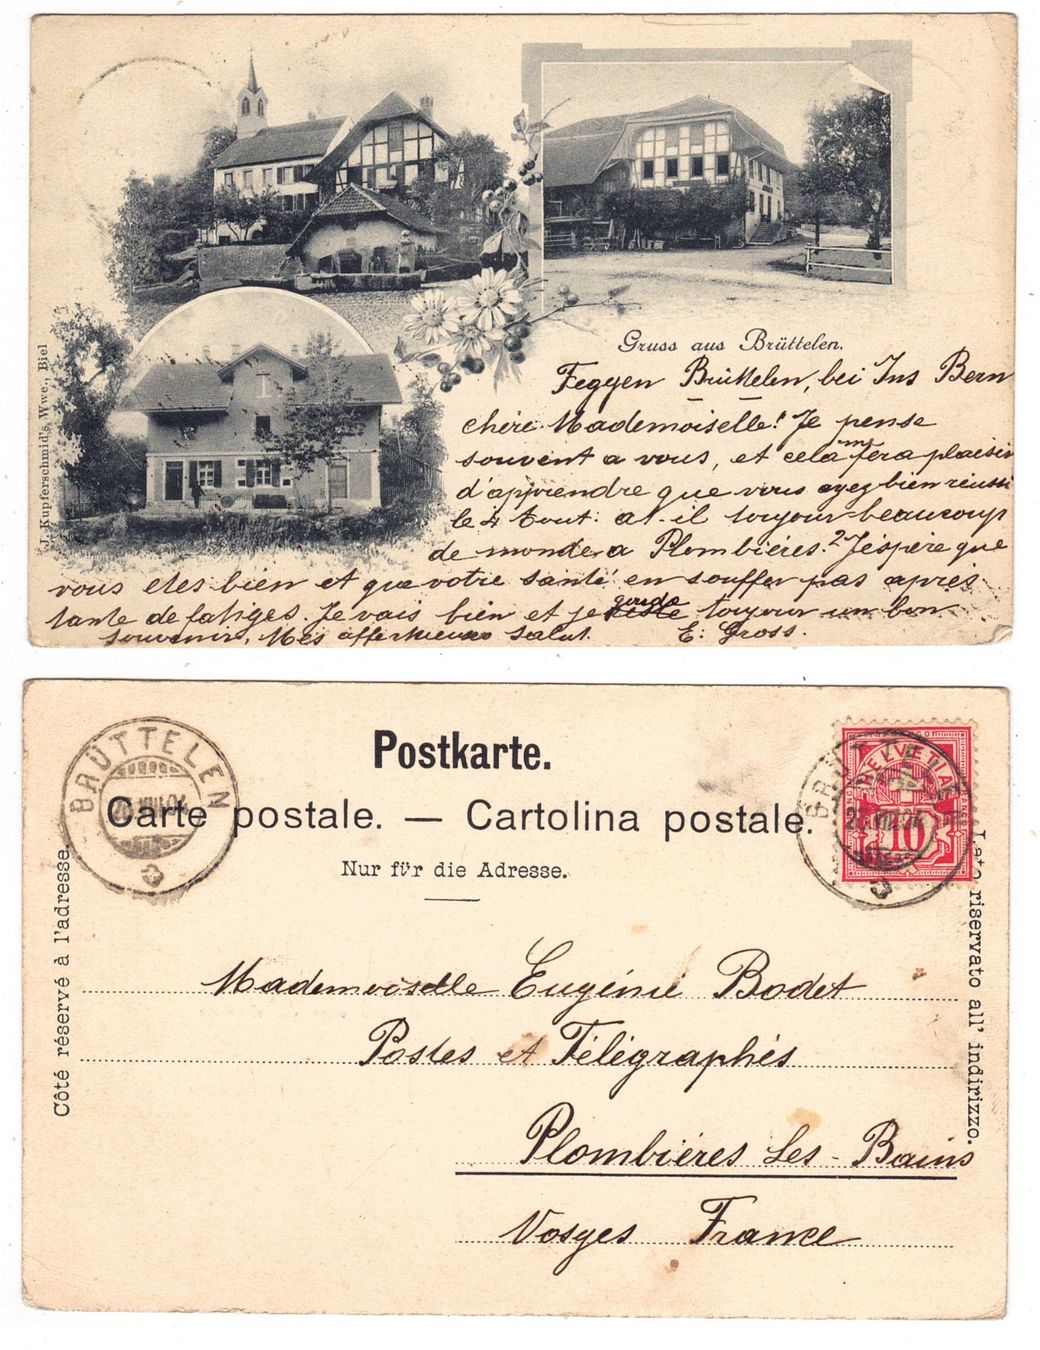 J. Kupferschmid's, Wwe., Biel
Gruss aus Brüttelen.
Feggen Brüttelen, bei Ins Bern
chère Mademoiselle! Je pense
souvent a vous, et cela me fera plaisir
d'apprendre que vous ayez bien réussi
le 4 tout. at-il toujour beaucoup
de monde a Plombiéres? J'éspère que
vous etes bien et que votre santé en souffer pas après
tante de fatiges. Je vais bien et je garde toujour un bon
souvenir, Mes affectueux salut. E. Gross.
BRÜTTELEN
Postkarte.
Carte postale. — Cartolina postale.
Nur für die Adresse.
HELVETIA
10
Côté réservé à l'adresse.
Lato riservato all' indirizzo.
Mademoiselle Eugénie Bodet
Postes et Télégraphés
Plombiéres Les-Bains
Vosges France